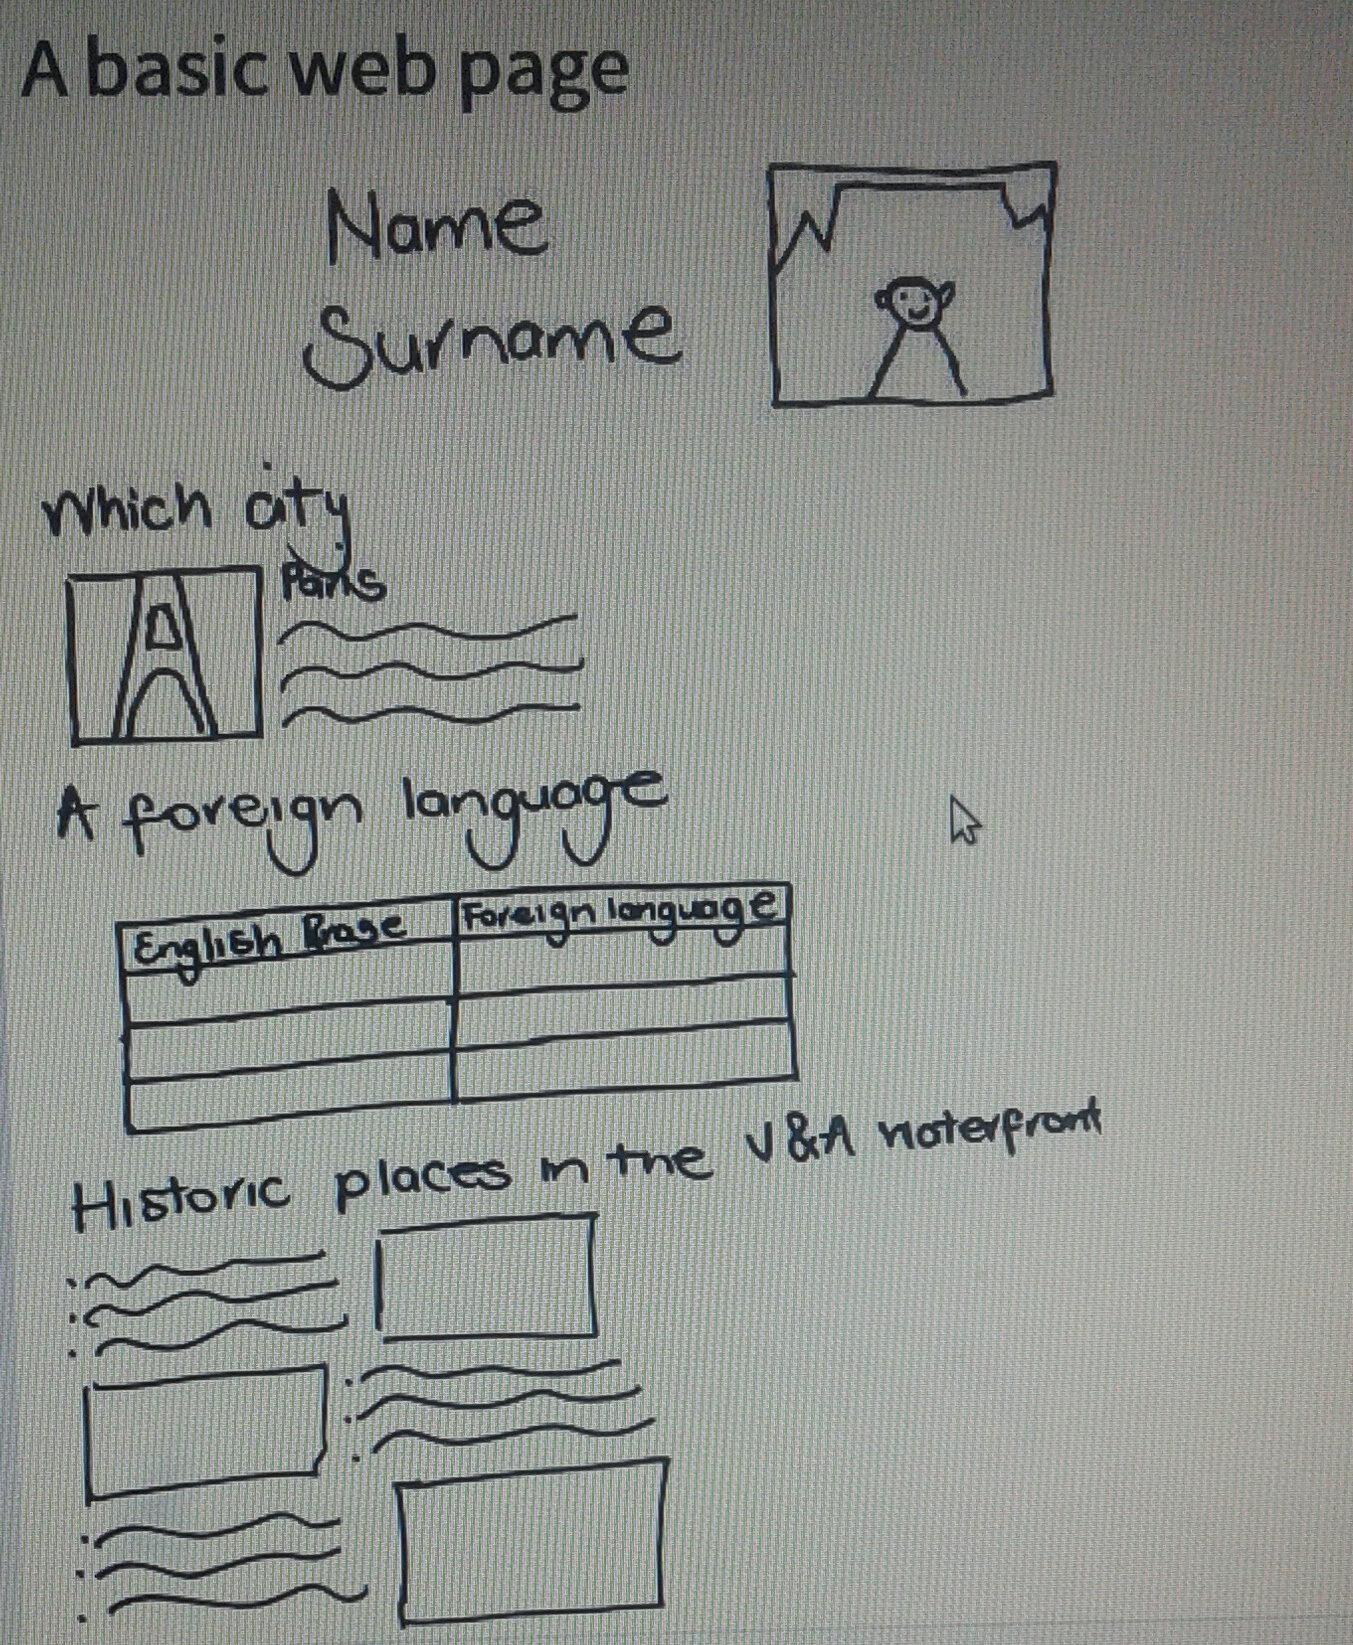 A basic web page
Name
Surname
Which city
Paris
A foreign language
English Prase
Foreign language
Historic places in the V&A waterfront